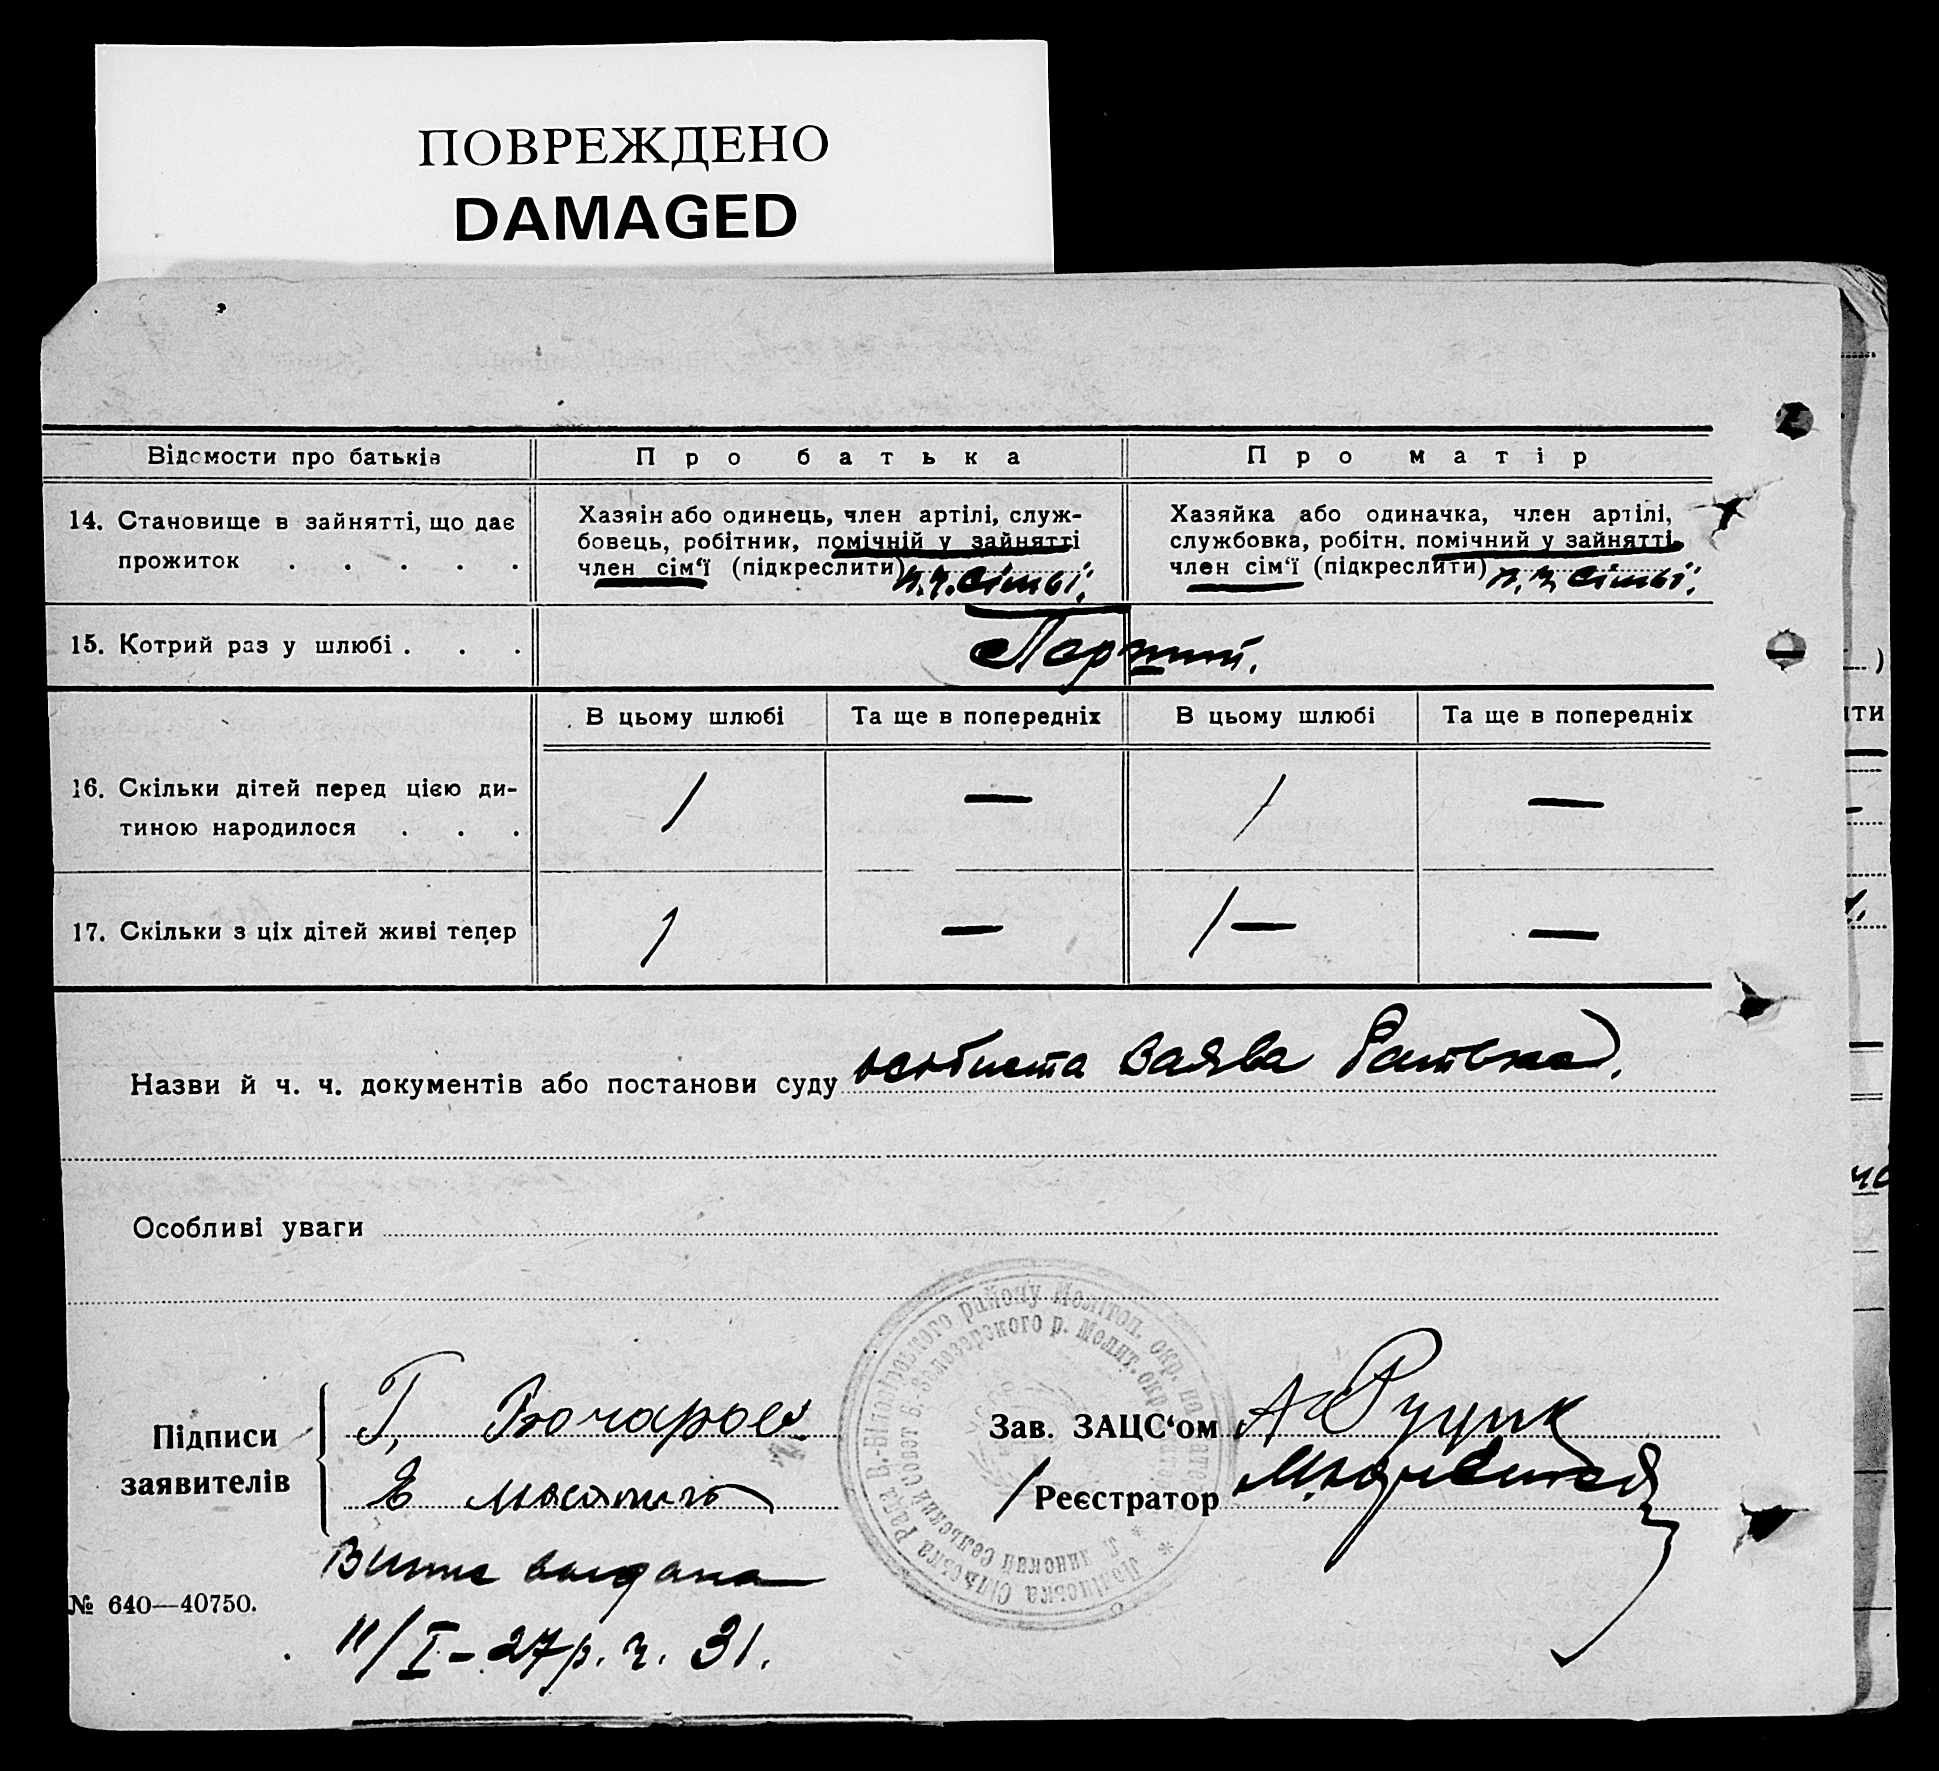 ПОВРЕЖДЕНО
DAMAGED
Відомости про батьків
Про батька
Про матір
14. Становище в зайнятті, що дає
прожиток . . . . .
Хазяін або одинець, член артілі, служ-
бовець, робітник, помічній у зайнятті
член сім'ї (підкреслити) п.ч. сімьі.
Хазяйка або одиначка, член артілі,
службовка, робітн. помічний у зайнятті
член сім'ї (підкреслити) п. ч. сімьі.
15. Котрий раз у шлюбі . . .
Парший.
В цьому шлюбі
Та ще в попередніх
В цьому шлюбі
Та ще в попередніх
16. Скільки дітей перед цією ди-
тиною народилося . . .
1 — 1 —
17. Скільки з ціх дітей живі тепер
1 — 1 — —
Назви й ч. ч. документів або постанови суду особиста заява батька.
Особливі уваги
Підписи
заявителів
Г. Бочаров
Зав. ЗАЦС'ом
Реєстратор
Рада В.-Білозірського району Мелітоп. окр.
Сельский Совет Б.-Белозерского р. Мелит. окр.
Сільська
№ 640—40750.
11/I – 27 р. ч. 31.
ти